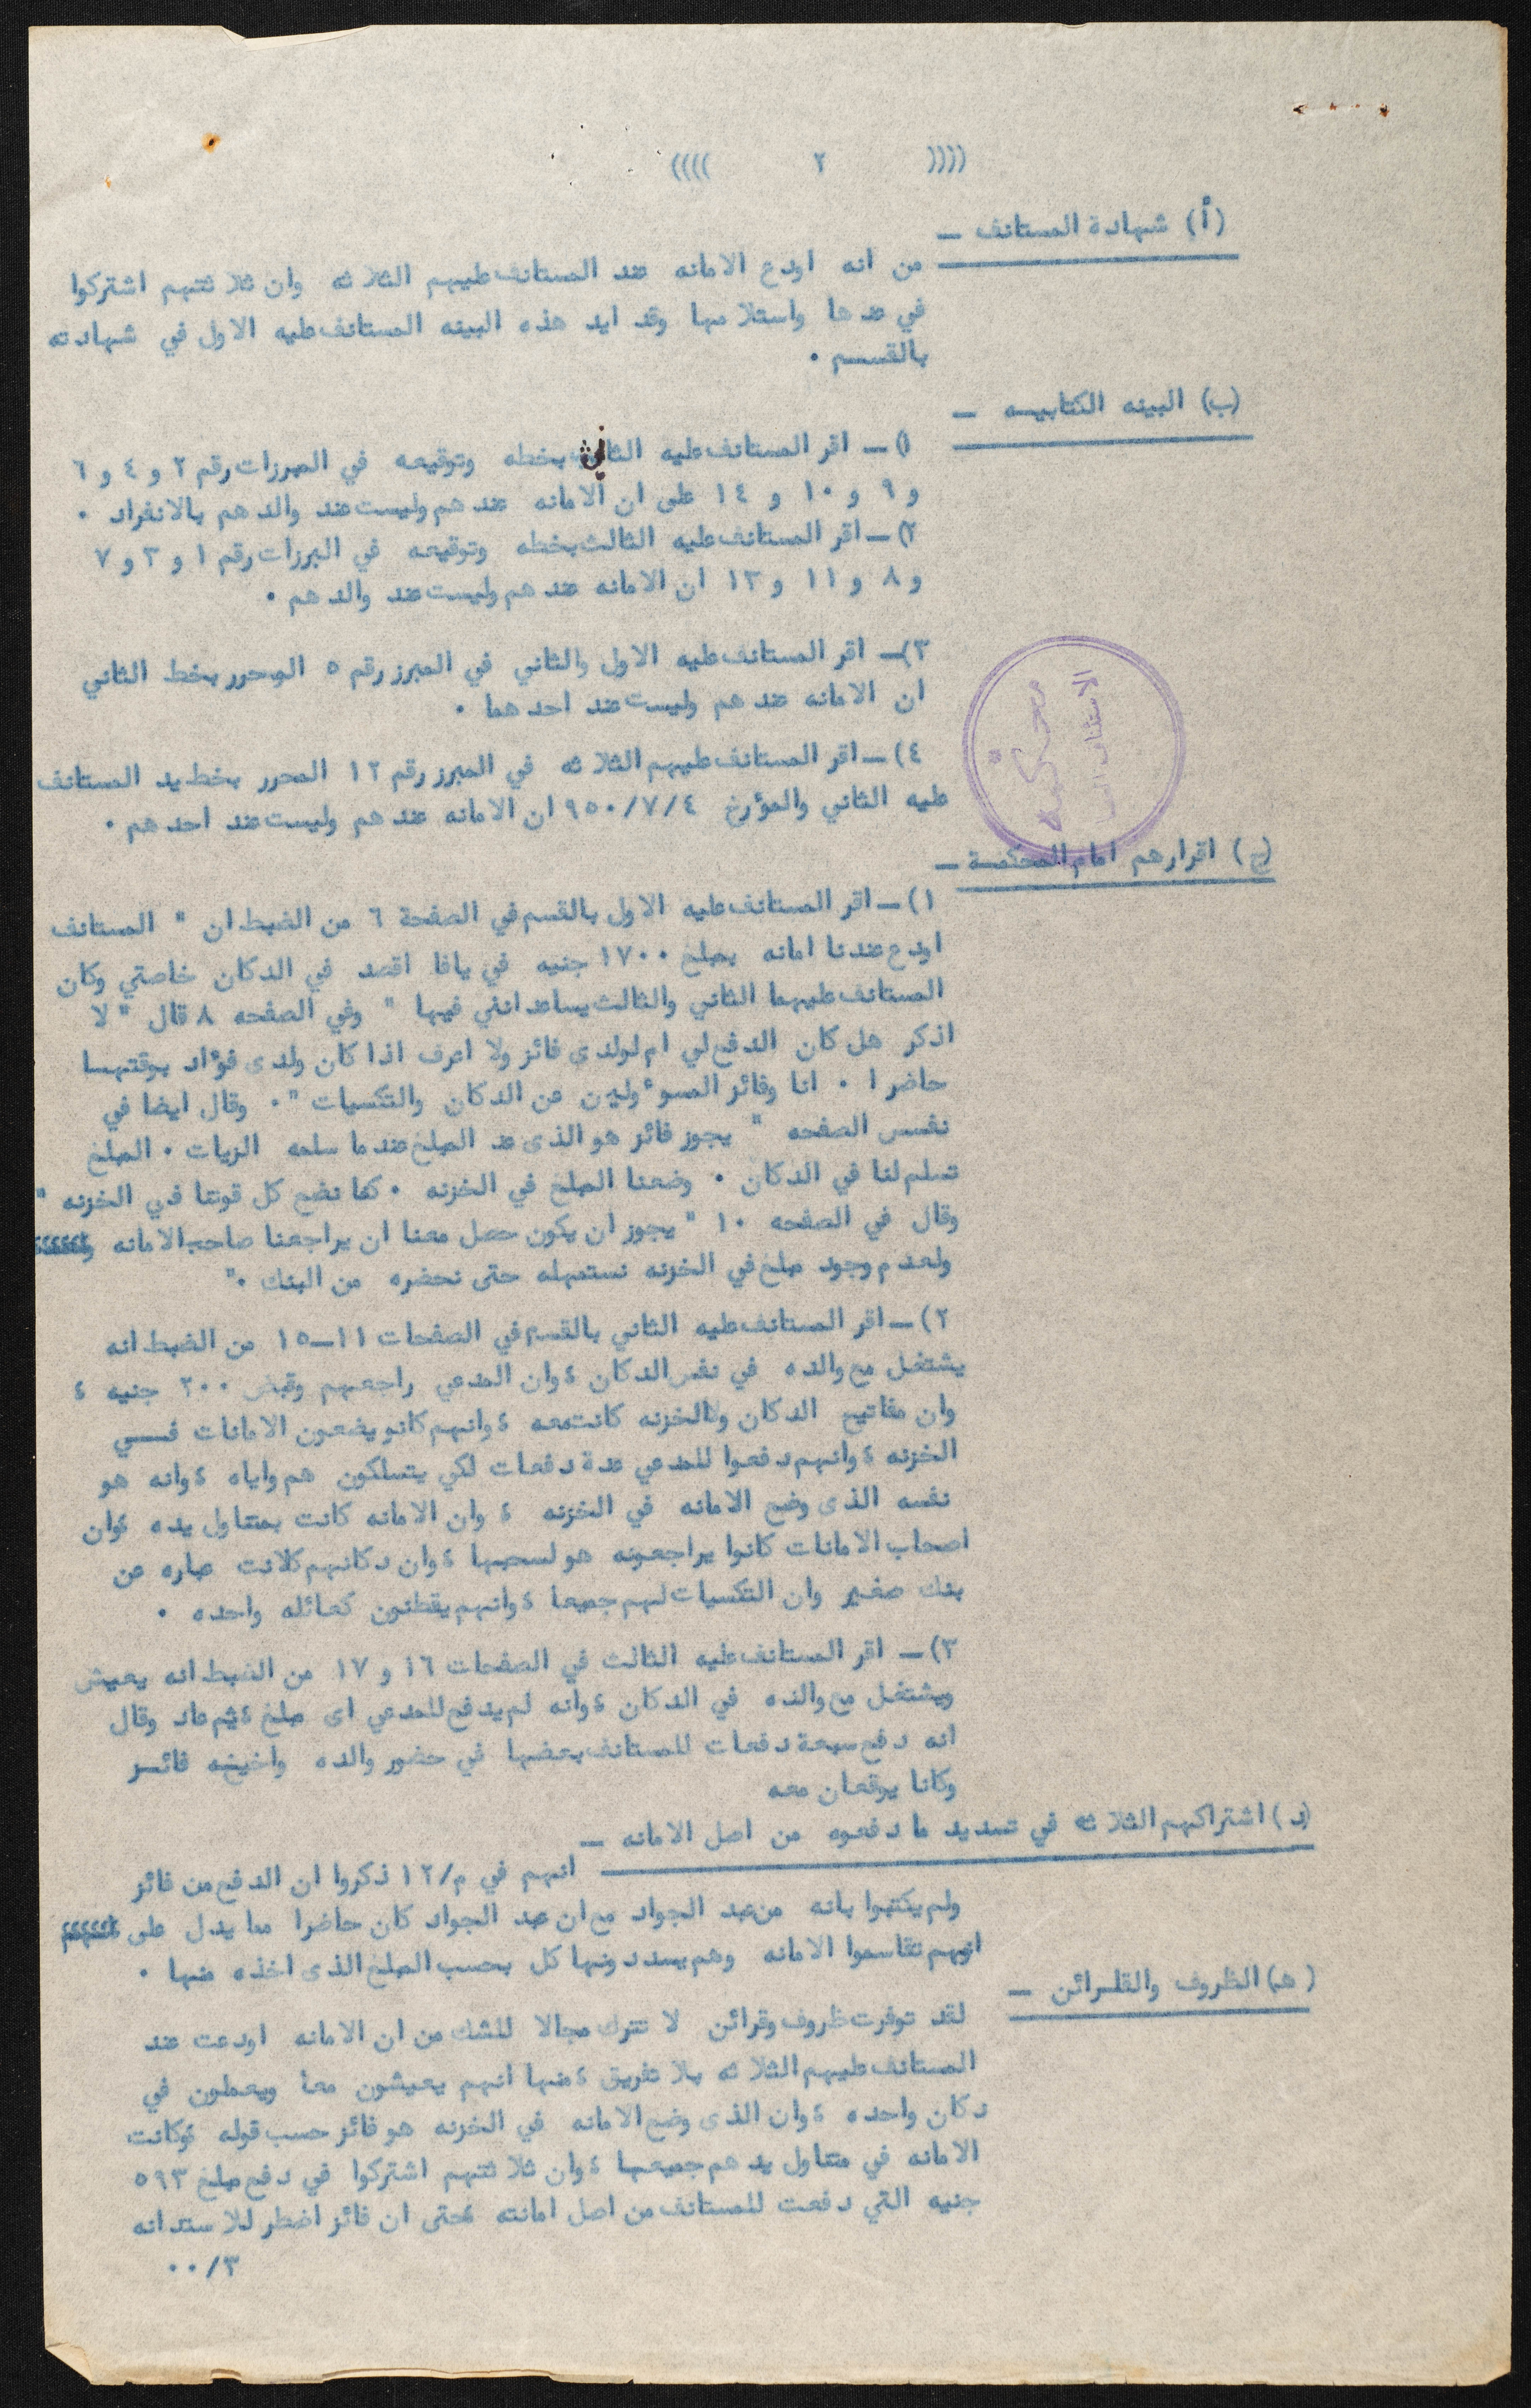 ((((        ٢        ))))
(أ) شهادة المستانف —
من انه اودع الامانه عند المستانف عليهم الثلاثه وان ثلاثتهم اشتركوا
في عدها واستلامها وقد ايد هذه البينه المستانف عليه الاول في شهادته
بالقسم ٠
(ب) البينه الكتابيه —
١) — اقر المستانف عليه الثاني بخطه وتوقيعه في المبرزات رقم ٢ و ٤ و ٦
و ٩ و ١٠ و ١٤ على ان الامانه عندهم وليست عند والدهم بالانفراد ٠
٢) — اقر المستانف عليه الثالث بخطه وتوقيعه في البرزات رقم ١ و ٣ و ٧
و ٨ و ١١ و ١٣ ان الامانه عندهم وليست عند والدهم ٠
٣) — اقر المستانف عليه الاول والثاني في المبرز رقم ٥ المحرر بخط الثاني
ان الامانه عندهم وليست عند احدهما ٠
٤) — اقر المستانف عليهم الثلاثه في المبرز رقم ١٢ المحرر بخط يد المستانف
عليه الثاني والمؤرخ ٩٥٠/٧/٤ ان الامانه عندهم وليست عند احدهم ٠
محكمة
الاستئناف
(ج) اقرارهم امام المحكمة —
١) — اقر المستانف عليه الاول بالقسم في الصفحة ٦ من الضبط ان " المستانف
اودع عندنا امانه بمبلغ ١٧٠٠ جنيه في يافا اقصد في الدكان خاصتي وكان
المستانف عليهما الثاني والثالث يساعدانني فيها " وفي الصفحه ٨ قال " لا
اذكر هل كان الدفع لي ام لولدي فائز ولا اعرف اذا كان ولدى فؤاد بوقتهسا
حاضرا ٠ انا وفائز المسوءولين عن الدكان والتكسيات " ٠ وقال ايضا في
نفس الصفحه " يجوز فائز هو الذى عد المبلغ عندما سلمه الزيات ٠ المبلغ
تسلم لنا في الدكان ٠ وضعنا المبلغ في الخزنه ٠ كنا نضع كل قوتنا في الخزنه "
وقال في الصفحه ١٠ " يجوز ان يكون حصل معنا ان يراجعنا صاحب الامانه
ولعدم وجود مبلغ في الخزنه نستمهله حتى نحضره من البنك ٠"
٢) — اقر المستانف عليه الثاني بالقسم في الصفحات ١١—١٥ من الضبط انه
يشتغل مع والده في نفس الدكان ؤوان المدعي راجعهم وقبض ٢٠٠ جنيه ؤ
وان مفاتيح الدكان والخزنه كانت معه ؤوانهم كانو يضعون الامانات فـي
الخزنه ؤوانهم دفعوا للمدعي عدة دفعات لكي يتسلكون هم واياه ؤوانه هو
نفسه الذى وضع الامانه في الخزنه ؤ وان الامانه كانت بمتناول يده ؤوان
اصحاب الامانات كانوا يراجعونه هو لسحبها ؤوان دكانهم كانت عباره عن
بنك صغير وان التكسيات لهم جميعا ؤوانهم يقطنون كعائله واحده ٠
٣) — اقر المستانف عليه الثالث في الصفحات ١٦ و ١٧ من الضبط انه يعيش
ويشتغل مع والده في الدكان ؤوانه لم يدفع للمدعي اى مبلغ ؤثم عاد وقال
انه دفع سبعة دفعات للمستانف بعضها في حضور والده واخيه فائز
وكانا يوقعان معه
(د) اشتراكهم الثلاثه في تسديد ما دفعوه من اصل الامانه —
انهم في م/١٢ ذكروا ان الدفع من فائز
ولم يكتبوا بانه من عبد الجواد مع ان عبد الجواد كان حاضرا مما يدل على
انهم تقاسموا الامانه وهم يسددونها كل بحسب المبلغ الذى اخذه منها ٠
(هـ) الظروف والقرائن —
لقد توفرت ظروف وقرائن لا تترك مجالا للشك من ان الامانه اودعت عند
المستانف عليهم الثلاثه بلا تفريق ؤمنها انهم يعيشون معا ويعملون في
دكان واحده ؤوان الذى وضع الامانه في الخزنه هو فائز حسب قوله ؤوكانت
الامانه في متناول يدهم جميعها ؤوان ثلاثتهم اشتركوا في دفع مبلغ ٥٩٣
جنيه التي دفعت للمستانف من اصل امانته ؤحتى ان فائز اضطر للاستدانه
٠٠/٣